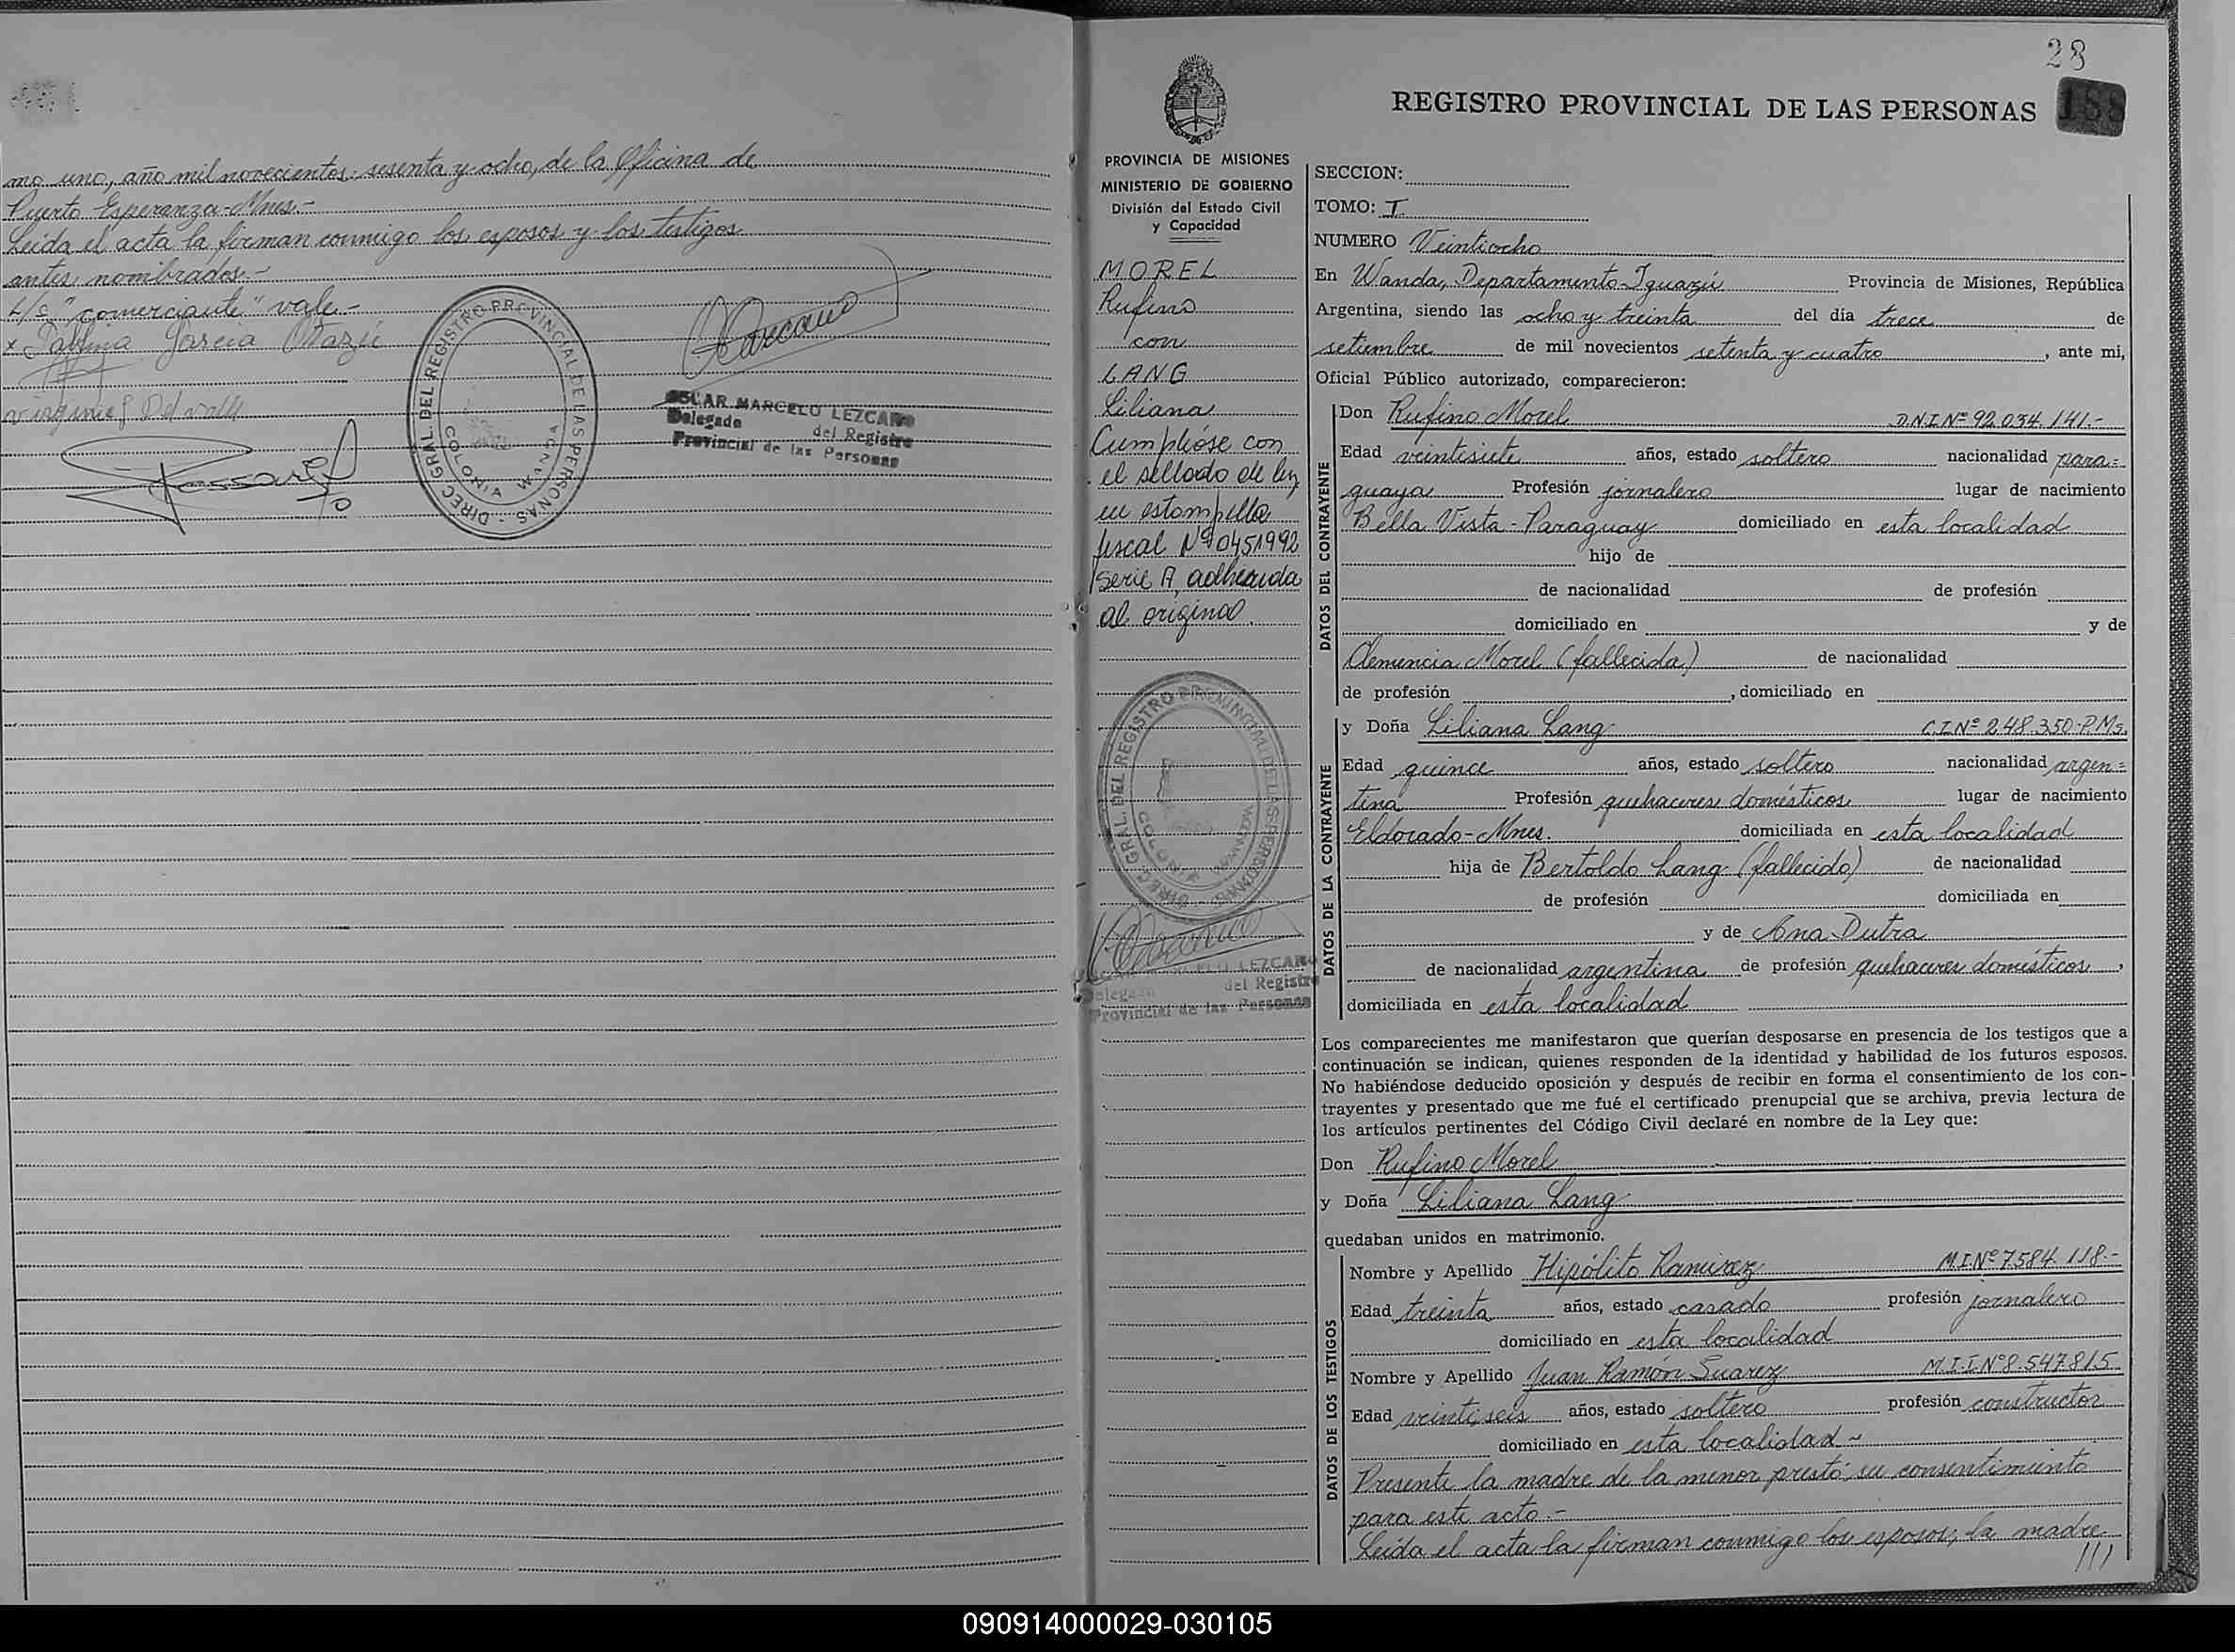 mo uno, año mil novecientos sesenta y ocho, de la Oficina de
Puerto Esperanza-Mnes.-
Leida el acta la firman conmigo los esposos y los testigos
antes nombrados.-
"comerciante" vale.-
x Sabina Garcia Otazú
DIREC GRAL. DEL REGISTRO PROVINCIAL DE LAS PERSONAS -
COLONIA WANDA
OSCAR MARCELO LEZCANO
Delegado del Registro
Provincial de las Personas
28
188
REGISTRO PROVINCIAL DE LAS PERSONAS
PROVINCIA DE MISIONES
MINISTERIO DE GOBIERNO
División del Estado Civil
y Capacidad
MOREL
Rufino
con
LANG
Liliana
Cumplióse con
el sellado de ley
en estampilla
fiscal Nº 0451992
serie A, adherida
al original.
DIREC GRAL. DEL REGISTRO PROVINCIAL DE LAS PERSONAS
COLONIA WANDA
OSCAR MARCELO LEZCANO
Delegado del Registro
Provincial de las Personas
SECCION:
TOMO: I
NUMERO Veintiocho
En Wanda, Departamento-Iguazú Provincia de Misiones, República
Argentina, siendo las ocho y treinta del día trece de
setiembre de mil novecientos setenta y cuatro, ante mi,
Oficial Público autorizado, comparecieron:
DATOS DEL CONTRAYENTE
Don Rufino Morel D.N.I.Nº 92.034.141.-
Edad veintisiete años, estado soltero nacionalidad para=
guaya Profesión jornalero lugar de nacimiento
Bella Vista-Paraguay domiciliado en esta localidad
hijo de
de nacionalidad de profesión
domiciliado en y de
Clemencia Morel (fallecida) de nacionalidad
de profesión , domiciliado en
DATOS DE LA CONTRAYENTE
y Doña Liliana Lang C.I.Nº 248.350-P.Ms.
Edad quince años, estado soltero nacionalidad argen=
tina Profesión quehaceres domésticos lugar de nacimiento
Eldorado-Mnes. domiciliada en esta localidad
hija de Bertoldo Lang (fallecido) de nacionalidad
de profesión domiciliada en
y de Ana Dutra
de nacionalidad argentina de profesión quehaceres domésticos,
domiciliada en esta localidad
Los comparecientes me manifestaron que querían desposarse en presencia de los testigos que a
continuación se indican, quienes responden de la identidad y habilidad de los futuros esposos.
No habiéndose deducido oposición y después de recibir en forma el consentimiento de los con-
trayentes y presentado que me fué el certificado prenupcial que se archiva, previa lectura de
los artículos pertinentes del Código Civil declaré en nombre de la Ley que:
Don Rufino Morel
y Doña Liliana Lang
quedaban unidos en matrimonio.
DATOS DE LOS TESTIGOS
Nombre y Apellido Hipólito Ramirez M.I.Nº 7.584.118.-
Edad treinta años, estado casado profesión jornalero
domiciliado en esta localidad
Nombre y Apellido Juan Ramón Suarez M.I.I.Nº 8.547.815
Edad veintiseis años, estado soltero profesión constructor
domiciliado en esta localidad-
Presente la madre de la menor prestó su consentimiento
para este acto.-
Leida el acta la firman conmigo los esposos, la madre
///
090914000029-030105